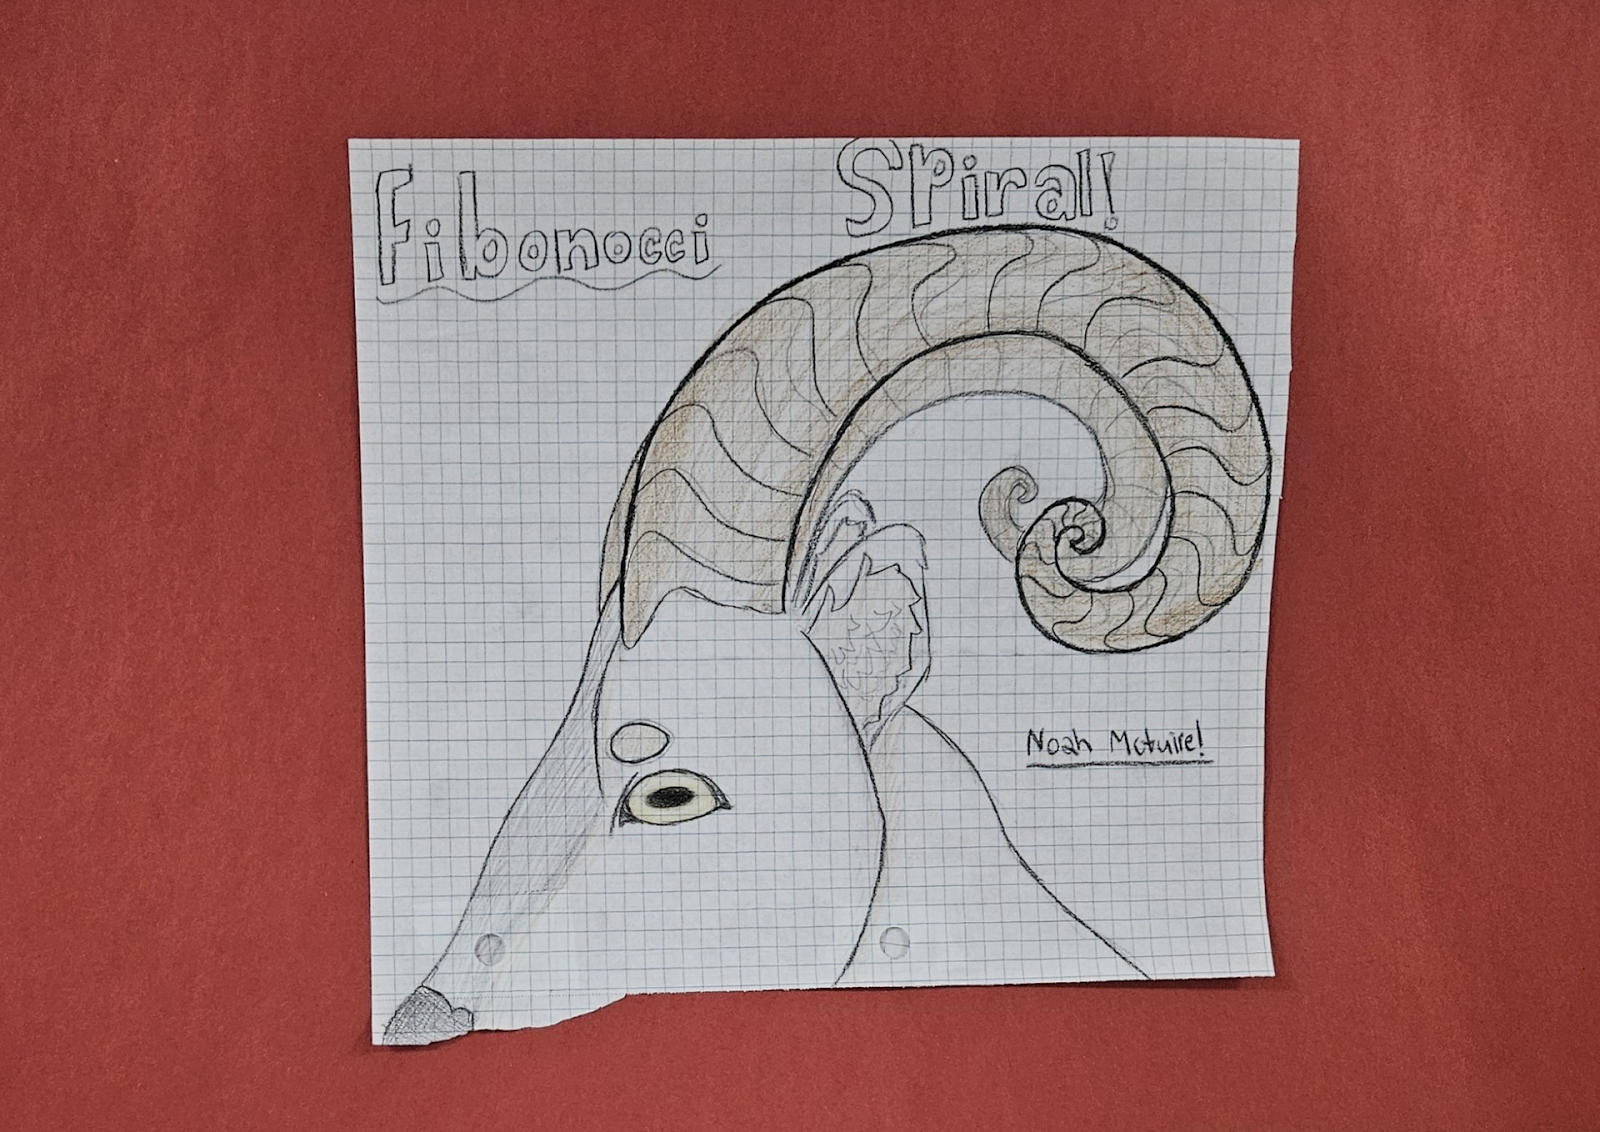 Fibonocci
Spiral!
Noah Mctuire!